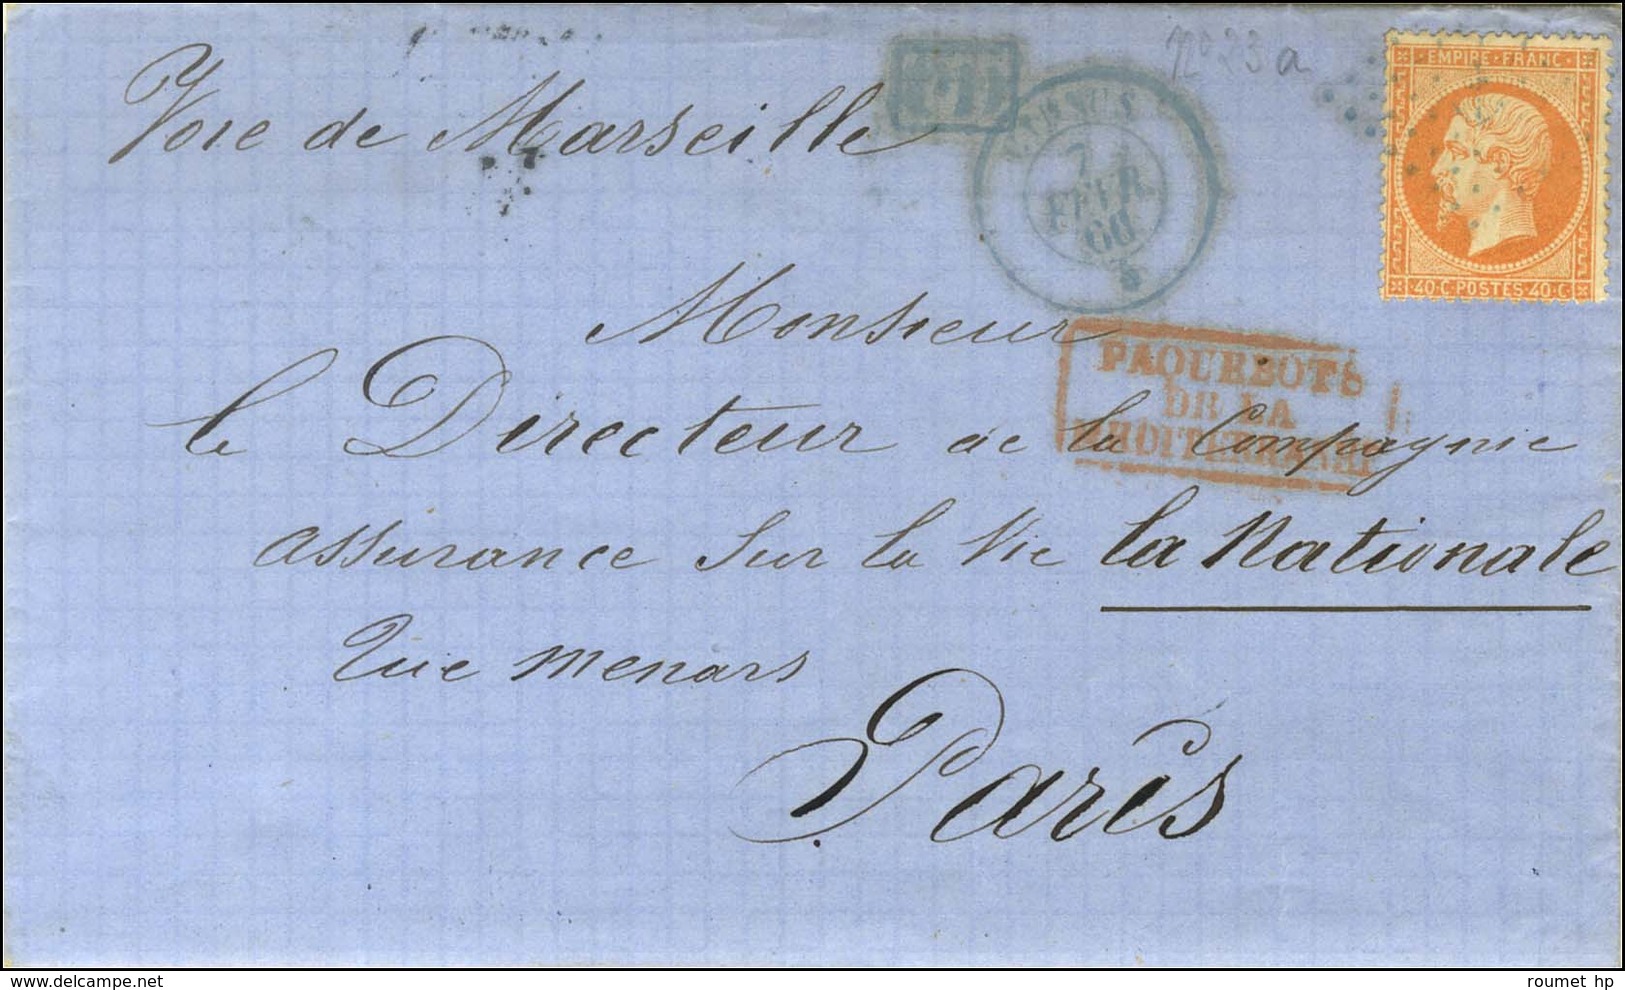 Nº 23 a
EMPIRE FRANC
Voie de Marseille
PD
7
FEVR
66
40 C POSTES 40 C
Monsieur
PAQUEBOTS
DE LA
MEDITERRANEE
le Directeur de la Compagnie
assurance sur la Vie la Nationale
Rue Menars
Paris
www.delcampe.net
roumet hp